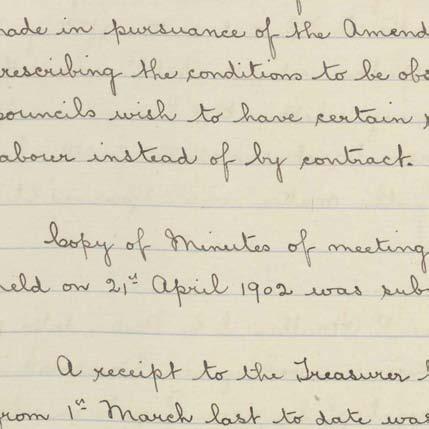 made in pursuance of the Amend
rescribing the conditions to be obs
ouncils wish to have certain
abour instead of by contract.
Copy of Minutes of meeting
held on 21st April 1902 was sub
A receipt to the Treasurer
from 1st March last to date was